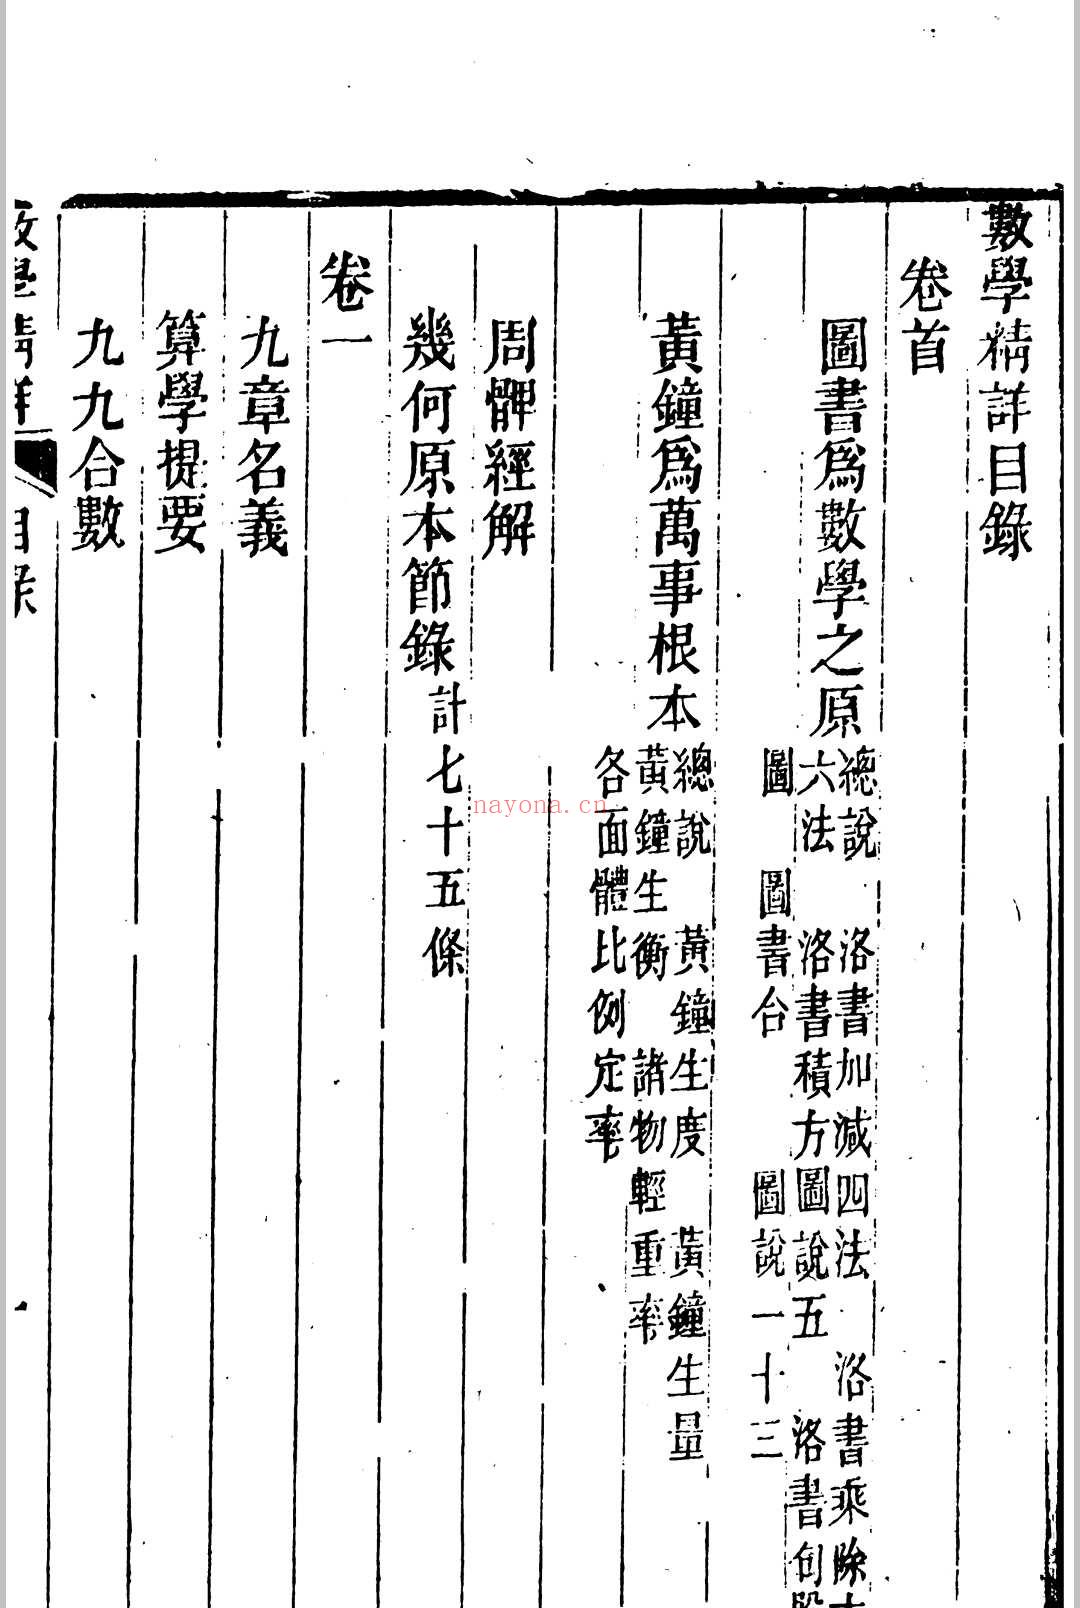 數學精詳目錄
卷首
圖書爲數學之原
總說 洛書加減四法 洛書乘除
六法 洛書積方圖說五 洛書句股
圖 圖書合 圖說一十三
黃鐘爲萬事根本
總說 黃鐘生度 黃鐘生量
黃鐘生衡 諸物輕重率
各面體比例定率
周髀經解
幾何原本節錄計七十五條
卷一
九章名義
算學提要
九九合數
數學精詳 目錄
nayona.cn